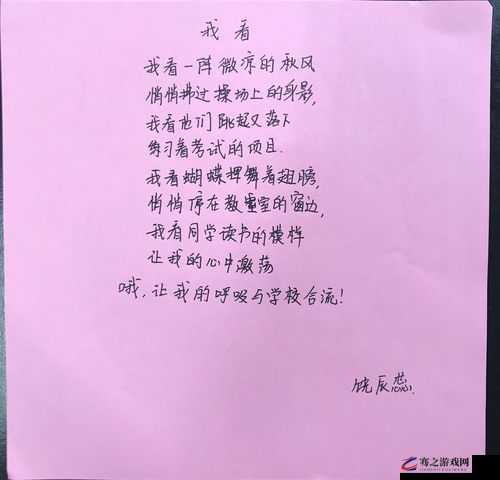 我看
我看一阵微凉的秋风
悄悄拂过操场上的身影,
我看他们跳起又落下
练习着考试的项目.
我看蝴蝶挥舞着翅膀,
悄悄停在教室的窗边,
我看同学读书的模样
让我的心中激荡
哦,让我的呼吸与学校合流!
饶辰蕊.
骞之游戏网